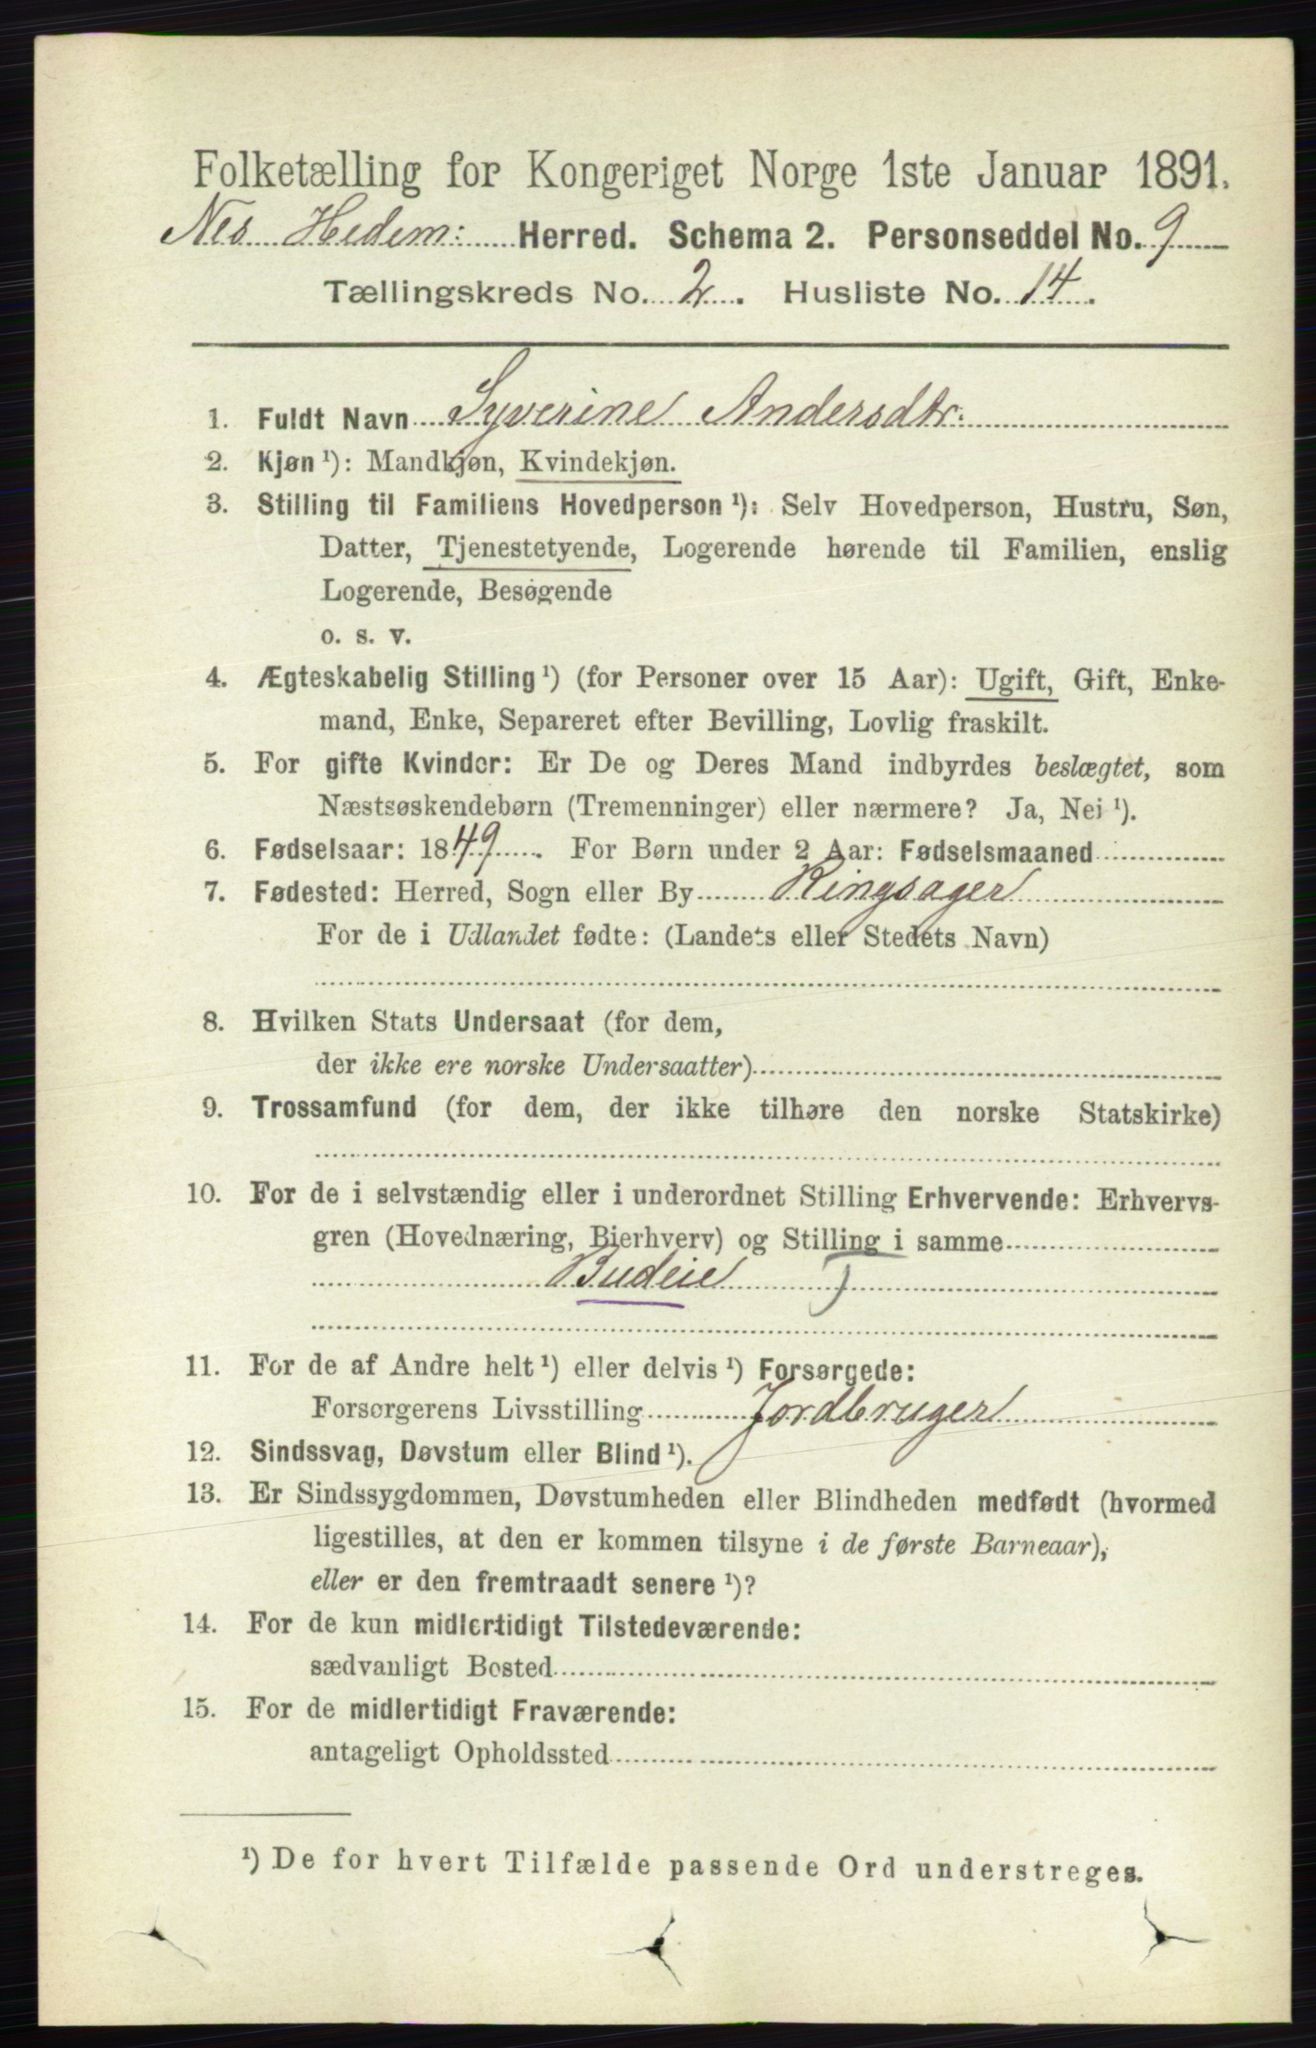 Folketælling for Kongeriget Norge 1ste Januar 1891.
Nes Hedem: Herred. Schema 2. Personseddel No. 9
Tællingskreds No. 2. Husliste No. 14.
1. Fuldt Navn Syverine Andersdtr.
2. Kjøn ¹): Mandkjøn, Kvindekjøn.
3. Stilling til Familiens Hovedperson ¹): Selv Hovedperson, Hustru, Søn,
Datter, Tjenestetyende, Logerende hørende til Familien, enslig
Logerende, Besøgende
o. s. v.
4. Ægteskabelig Stilling ¹) (for Personer over 15 Aar): Ugift, Gift, Enke-
mand, Enke, Separeret efter Bevilling, Lovlig fraskilt.
5. For gifte Kvinder: Er De og Deres Mand indbyrdes beslægtet, som
Næstsøskendebørn (Tremenninger) eller nærmere? Ja, Nei ¹).
6. Fødselsaar: 1849. For Børn under 2 Aar: Fødselsmaaned
7. Fødested: Herred, Sogn eller By Ringsager
For de i Udlandet fødte: (Landets eller Stedets Navn)
8. Hvilken Stats Undersaat (for dem,
der ikke ere norske Undersaatter)
9. Trossamfund (for dem, der ikke tilhøre den norske Statskirke)
10. For de i selvstændig eller i underordnet Stilling Erhvervende: Erhvervs-
gren (Hovednæring, Bierhverv) og Stilling i samme
Budeie
11. For de af Andre helt ¹) eller delvis ¹) Forsørgede:
Forsørgerens Livsstilling Jordbruger
12. Sindssvag, Døvstum eller Blind ¹).
13. Er Sindssygdommen, Døvstumheden eller Blindheden medfødt (hvormed
ligestilles, at den er kommen tilsyne i de første Barneaar),
eller er den fremtraadt senere ¹)?
14. For de kun midlertidigt Tilstedeværende:
sædvanligt Bosted
15. For de midlertidigt Fraværende:
antageligt Opholdssted
¹) De for hvert Tilfælde passende Ord understreges.